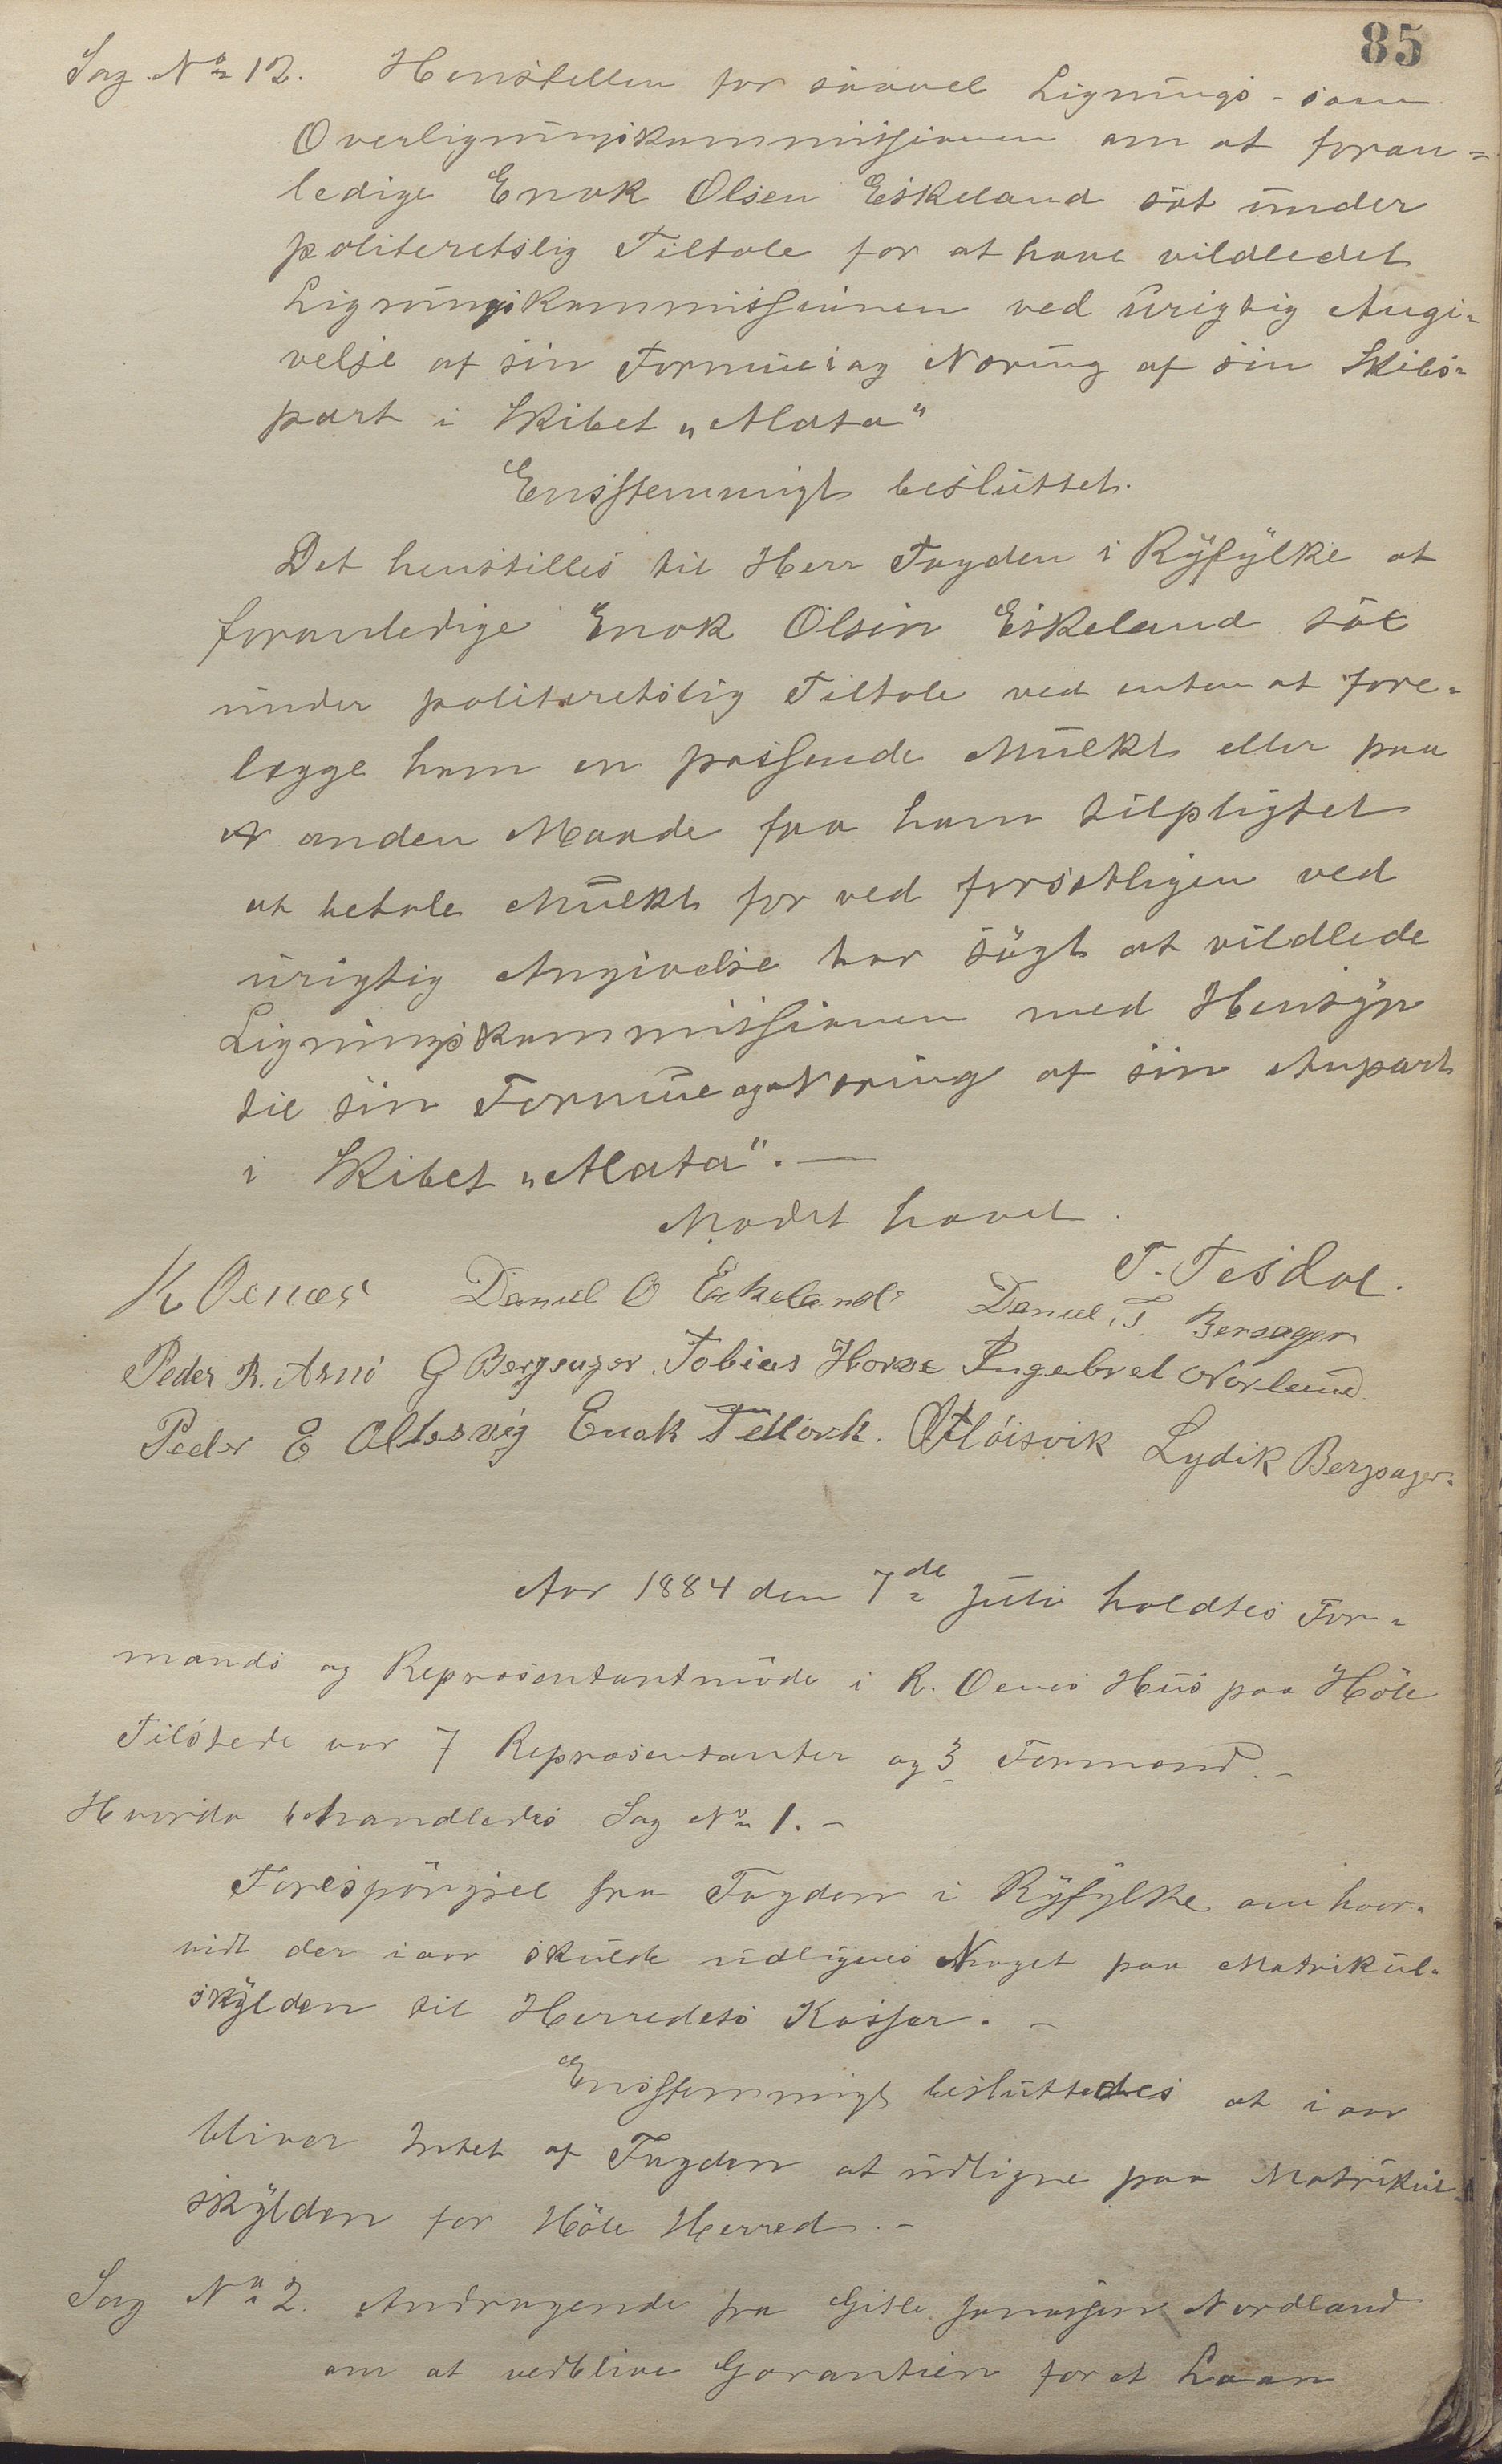 85
Sag No 12. Henstillen for saavel Lignings- som
Overligningskommissionen om at foran-
ledige Enok Olsen Eskeland sat under
politeretslig Tiltale for at have vildledet
Ligningskommissionen ved urigtig Angi-
velse af sin Formue og Næring af sin Skibs-
part i Skibet „Alata"
Enstemmigt besluttet.
Det henstilles til Herr Fogden i Ryfylke at
foranledige Enok Olsen Eskeland sat
under politeretslig Tiltale ved enten at fore-
lægge ham en passende Mulkt eller paa
anden Maade faa ham tilpligtet
at betale Mulkt for ved forsætligen ved
urigtig Angivelse har søgt at vildlede
Ligningskommissionen med Hensyn
til sin Formue og Næring af sin Anpart
i Skibet „Alata". —
Mødet hævet.
T. Tesdal.
K Oenæs Daniel O Eskeland Daniel T Bersager
Peder R. Asnø G Bergsager. Tobias Horve Ingebret Norland
Peder E Oltesvig Enok Tetlovk. Fløisvik Lydik Bergsager.
Aar 1884 den 7de Juli holdtes For-
mands og Repræsentantmøde i R. Oenes Hus paa Høle
Tilstede var 7 Repræsentanter og 3 Formænd. -
Hvorda behandledes Sag No 1. -
Forespørgsel fra Fogden i Ryfylke om hvor-
vidt der iaar skulde udlignes Noget paa Matrikul-
skylden til Herredets Kasser. -
Enstemmigt besluttedes at iaar
bliver Intet af Fogden at udligne paa Matrikul-
skylden for Høle Herred. -
Sag No 2. Andragende fra Gitle Jonassen Nordland
om at vedblive Garantien for et Laan